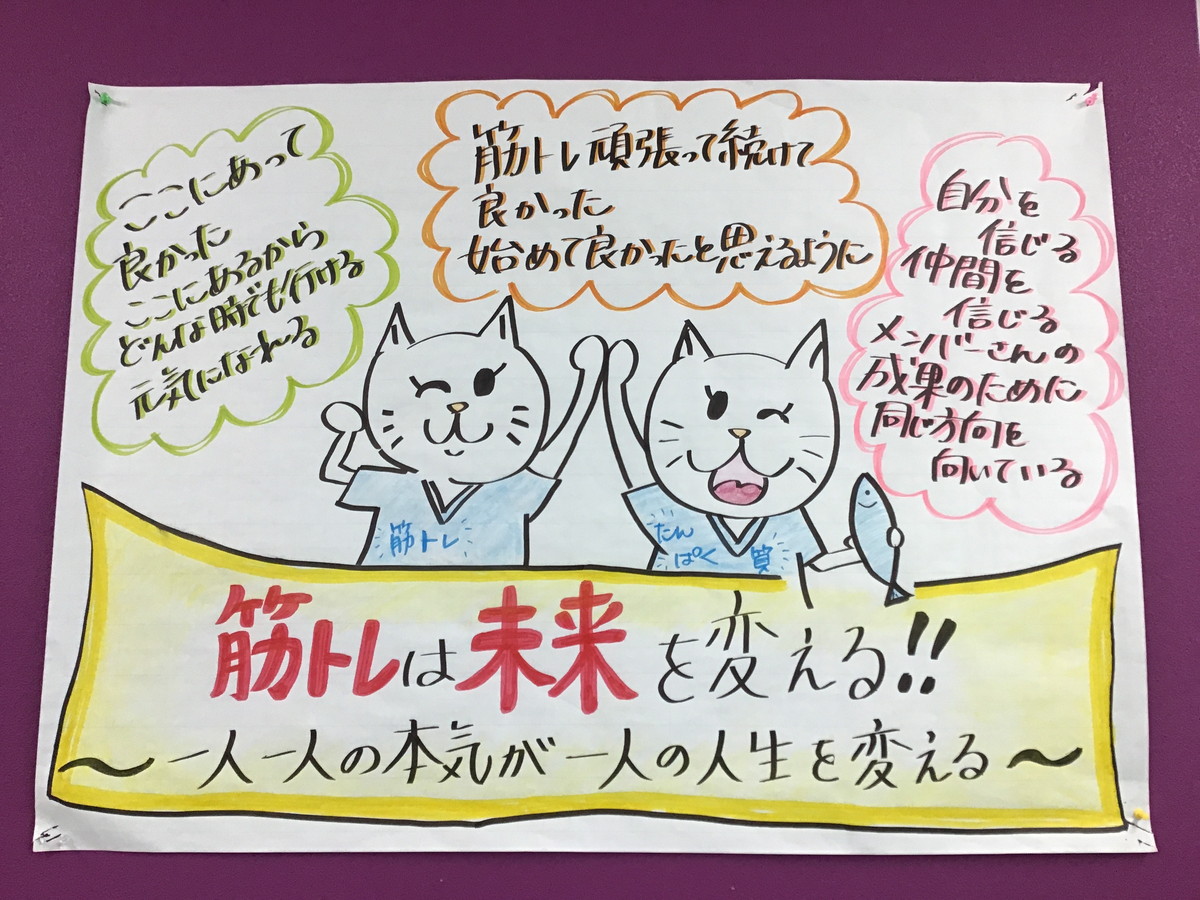 ここにあって
良かった
ここにあるから
どんな時でも行ける
元気になれる
筋トレ頑張って続けて
良かった
始めて良かったと思えるように
自分を
信じる
仲間を
信じる
メンバーさんの
成果のために
同じ方向を
向いている
筋トレ
たん
ぱく質
筋トレは未来を変える!!
〜一人一人の本気が一人の人生を変える〜